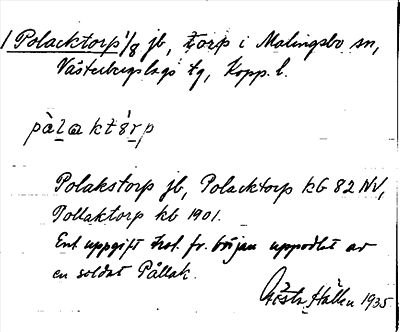 Polacktorp 1/8 jb, torp i Malingsbo sn,
Västerbergslags tg, Kopp. l.
pàlaktårp
Polakstorp jb, Polacktorp kb 82 NV,
Pollaktorp kb 1901.
Enl uppgift trol. fr. början uppodlat av
en soldat Pållak.
Gösta Hållen 1935